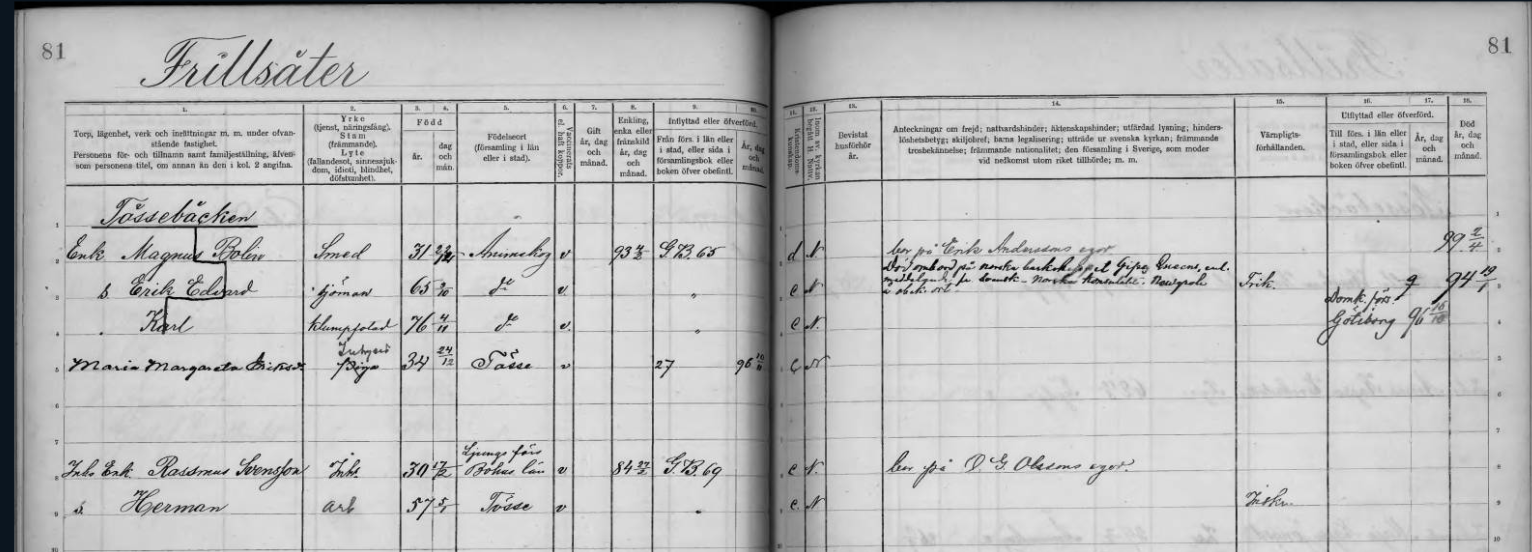 81
Frillsäter
81
1.
Torp, lägenhet, verk och inrättningar m. m. under ofvan-
stående fastighet.
Personens för- och tillnamn samt familjeställning, äfven-
som personens titel, om annan än den i kol. 2 angifna.
2.
Yrke
(tjenst, näringsfång).
Stam
(främmande).
Lyte
(fallandesot, sinnessjuk-
dom, idioti, blindhet,
döfstumhet).
3. 4.
Född
år.
dag
och
mån.
5.
Födelseort
(församling i län
eller i stad).
6.
Vaccinerats
el. haft koppor.
7.
Gift
år, dag
och
månad.
8.
Enkling,
enka eller
frånskild
år, dag
och
månad.
9. 10.
Inflyttad eller öfverförd.
Från förs. i län eller
i stad, eller sida i
församlingsbok eller
boken öfver obefintl.
År, dag
och
månad.
11.
Kristendoms-
kunskap.
12.
Inom sv. kyrkan
begått H. Nattv.
13.
Bevistat
husförhör
år.
14.
Anteckningar om frejd; nattvardshinder; äktenskapshinder; utfärdad lysning; hinders-
löshetsbetyg; skiljobref; barns legalisering; utträde ur svenska kyrkan; främmande
trosbekännelse; främmande nationalitet; den församling i Sverige, som moder
vid nedkomst utom riket tillhörde; m. m.
15.
Värnpligts-
förhållanden.
16. 17.
Utflyttad eller öfverförd.
Till förs. i län eller
i stad, eller sida i
församlingsbok eller
boken öfver obefintl.
År, dag
och
månad.
18.
Död
år, dag
och
månad.
1 Tössebäcken 1
2 Enk. Magnus Bolin Smed 31 Animskog v 93 G.B. 65 d N bor på Erik Anderssons egor 99 2/4 2
3 s. Erik Edvard sjöman 65 do v " c N Död ombord på norska barkskeppet Gipsy Queen, enl. Frik. 94 19/1 3
4 Karl klumpfotad 76 4/11 do v. " c N. Domk. förs. Göteborg 96 4
5 Maria Margareta 34 24/12 Tösse v 27 96 N 5
6 6
7 7
8 Inhs Enk. Rassmus Svensson Inhs. 30 Ljungs förs Bohus län v 84 G.B. 69 c N. bor på O. G. Olssons egor. 8
9 s. Herman arb 57 5/1 Tösse v " c. N Inskr. 9
10 10